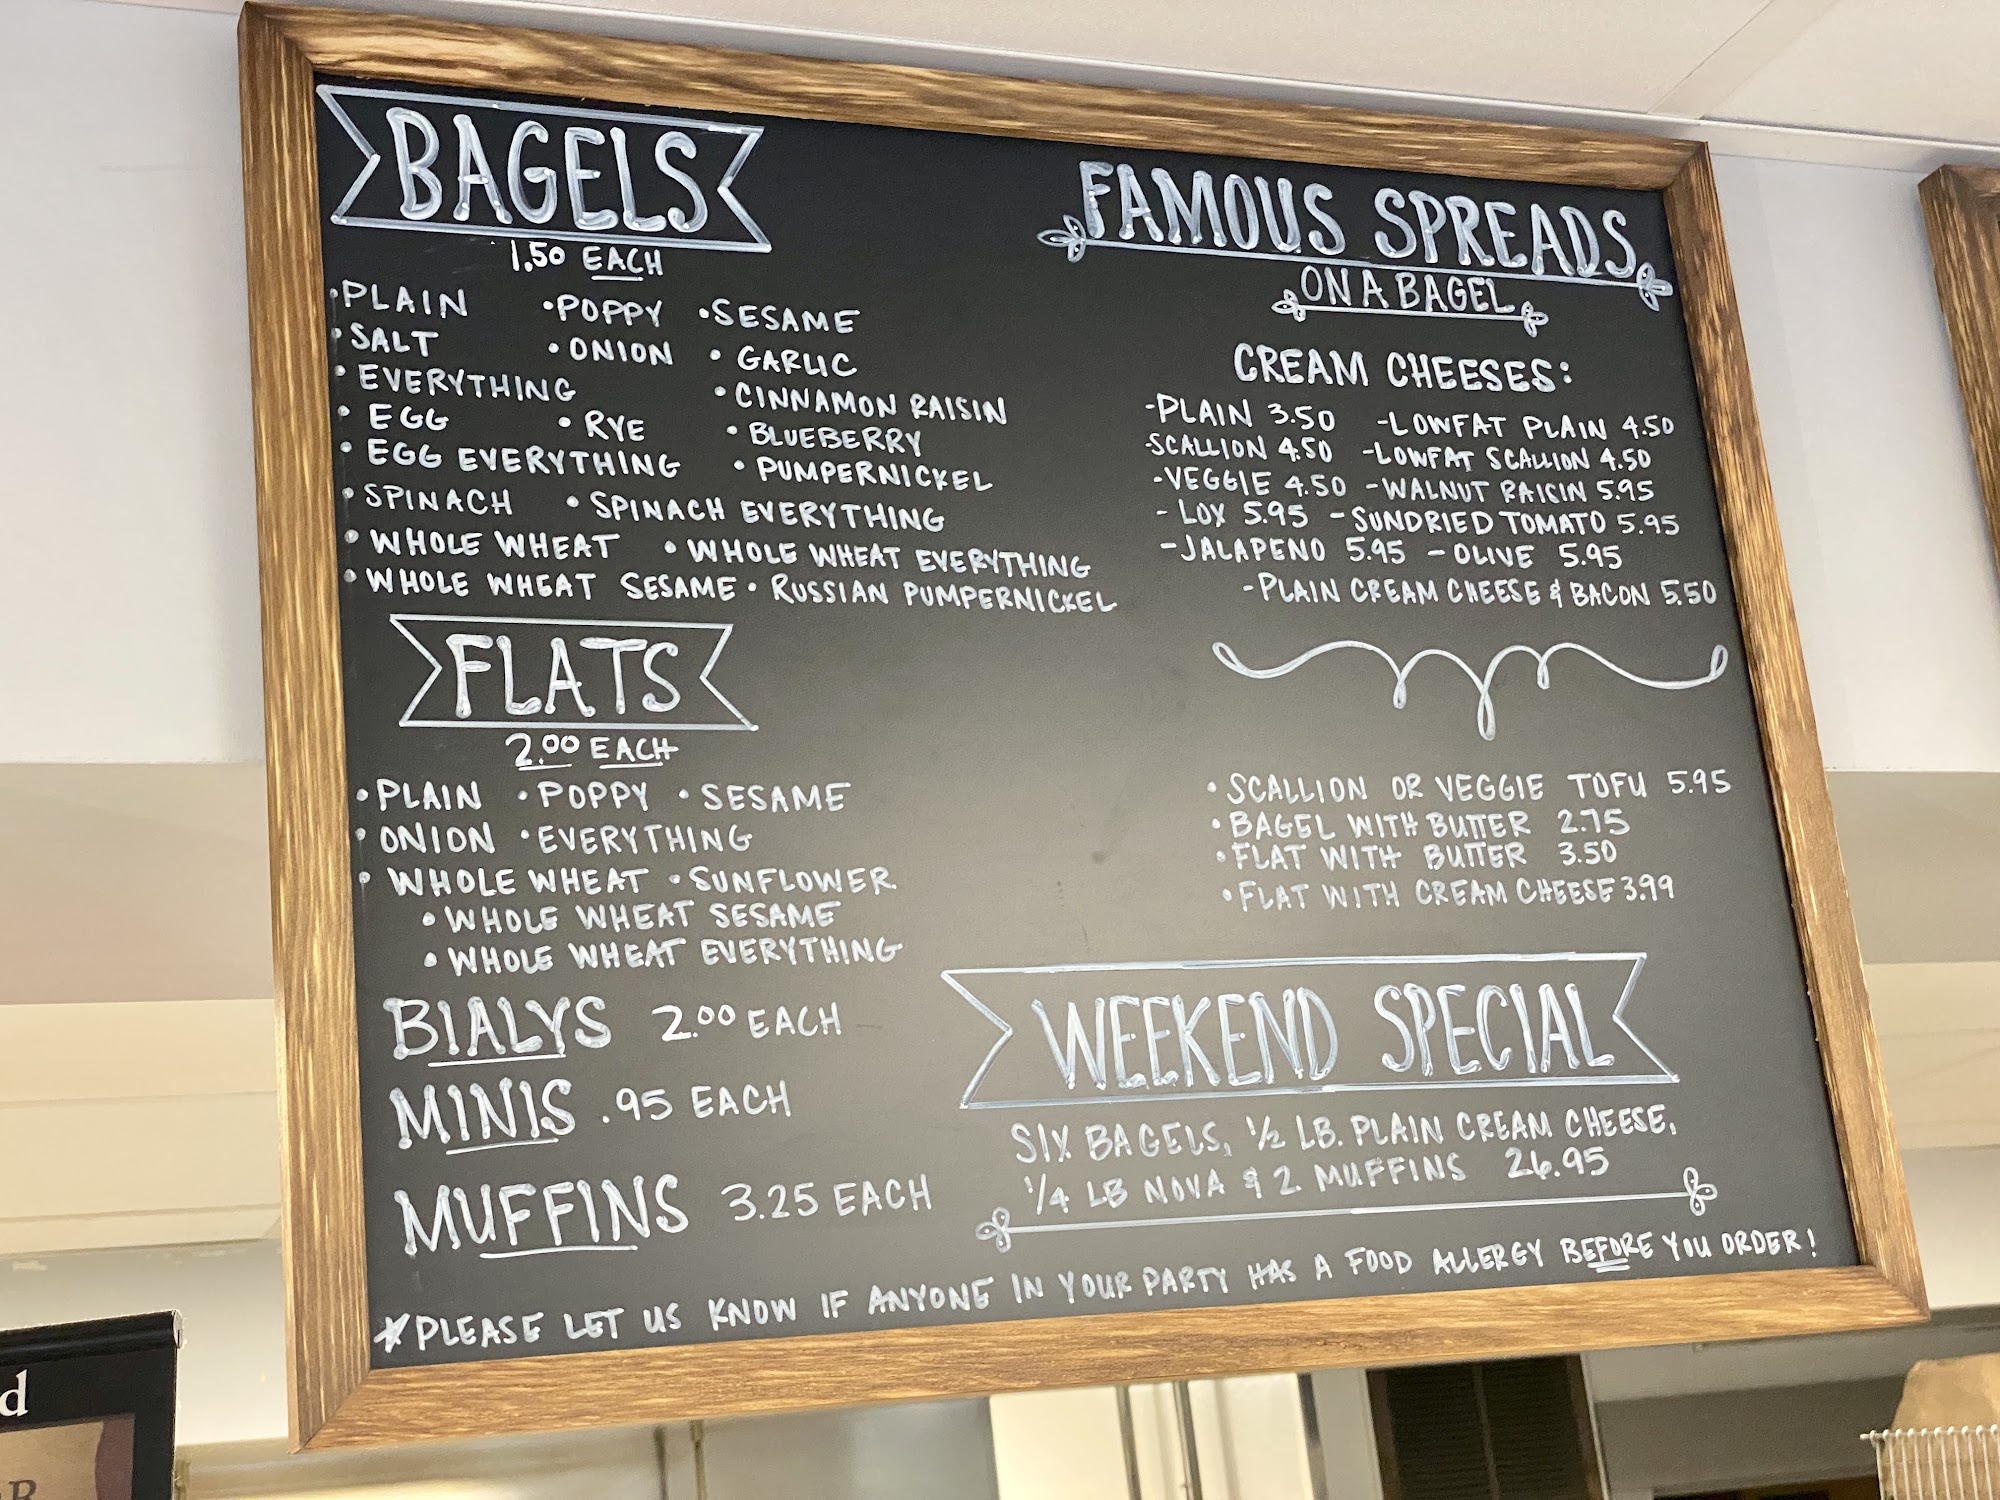 BAGELS
1.50 EACH
•PLAIN •POPPY •SESAME
•SALT •ONION •GARLIC
•EVERYTHING •CINNAMON RAISIN
•EGG •RYE •BLUEBERRY
•EGG EVERYTHING •PUMPERNICKEL
•SPINACH •SPINACH EVERYTHING
•WHOLE WHEAT •WHOLE WHEAT EVERYTHING
•WHOLE WHEAT SESAME •RUSSIAN PUMPERNICKEL
FLATS
2.00 EACH
•PLAIN •POPPY •SESAME
•ONION •EVERYTHING
•WHOLE WHEAT •SUNFLOWER
•WHOLE WHEAT SESAME
•WHOLE WHEAT EVERYTHING
BIALYS 2.00 EACH
MINIS .95 EACH
MUFFINS 3.25 EACH
FAMOUS SPREADS
ON A BAGEL
CREAM CHEESES:
-PLAIN 3.50 -LOWFAT PLAIN 4.50
-SCALLION 4.50 -LOWFAT SCALLION 4.50
-VEGGIE 4.50 -WALNUT RAISIN 5.95
-LOX 5.95 -SUNDRIED TOMATO 5.95
-JALAPENO 5.95 -OLIVE 5.95
-PLAIN CREAM CHEESE & BACON 5.50
•SCALLION OR VEGGIE TOFU 5.95
•BAGEL WITH BUTTER 2.75
•FLAT WITH BUTTER 3.50
•FLAT WITH CREAM CHEESE 3.99
WEEKEND SPECIAL
SIX BAGELS, 1/2 LB. PLAIN CREAM CHEESE,
1/4 LB NOVA & 2 MUFFINS 26.95
*PLEASE LET US KNOW IF ANYONE IN YOUR PARTY HAS A FOOD ALLERGY BEFORE YOU ORDER!
d